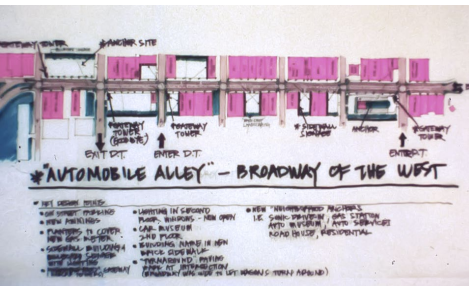 GATEWAY TOWER
* ANCHOR SITE
* GATEWAY TOWER
* GATEWAY TOWER
* SIDEWALK SIGNAGE
ANCHOR
* GATEWAY TOWER
EXIT D.T.
ENTER D.T.
ENTER D.T.
* "AUTOMOBILE ALLEY" - BROADWAY OF THE WEST
* KEY DESIGN POINTS
* ON STREET PARKING
* NEW AWNINGS
* PLANTERS TO COVER
NEW GAS METER
WITH LIGHTING
GATEWAY
* LIGHTING IN SECOND
FLOOR WINDOWS - NEW OPEN
* CAR MUSEUM
2ND FLOOR
* BUILDING NAME IN NEW
BRICK SIDEWALK
* "TURNAROUND" PAVING
PARK AT INTERSECTION
(BROADWAY WAS WIDE TO LET WAGONS TURN AROUND)
* NEW NEIGHBORHOOD ANCHORS
I.E. SONIC DRIVE-IN, GAS STATION
AUTO MUSEUM, AUTO SERVICES
ROAD HOUSE, RESIDENTIAL